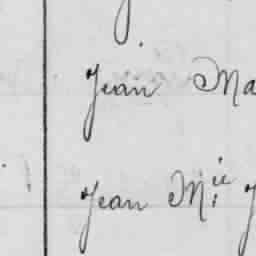 Jean Ma
Jean M.ie J